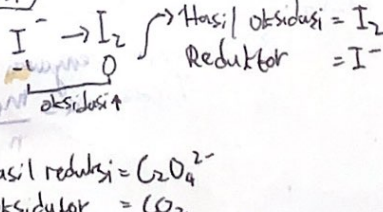 I⁻ → I₂ → Hasil oksidasi = I₂
-1 0 Reduktor = I⁻
oksidasi↑
asil reduksi = C₂O₄²⁻
ksidator = CO₂